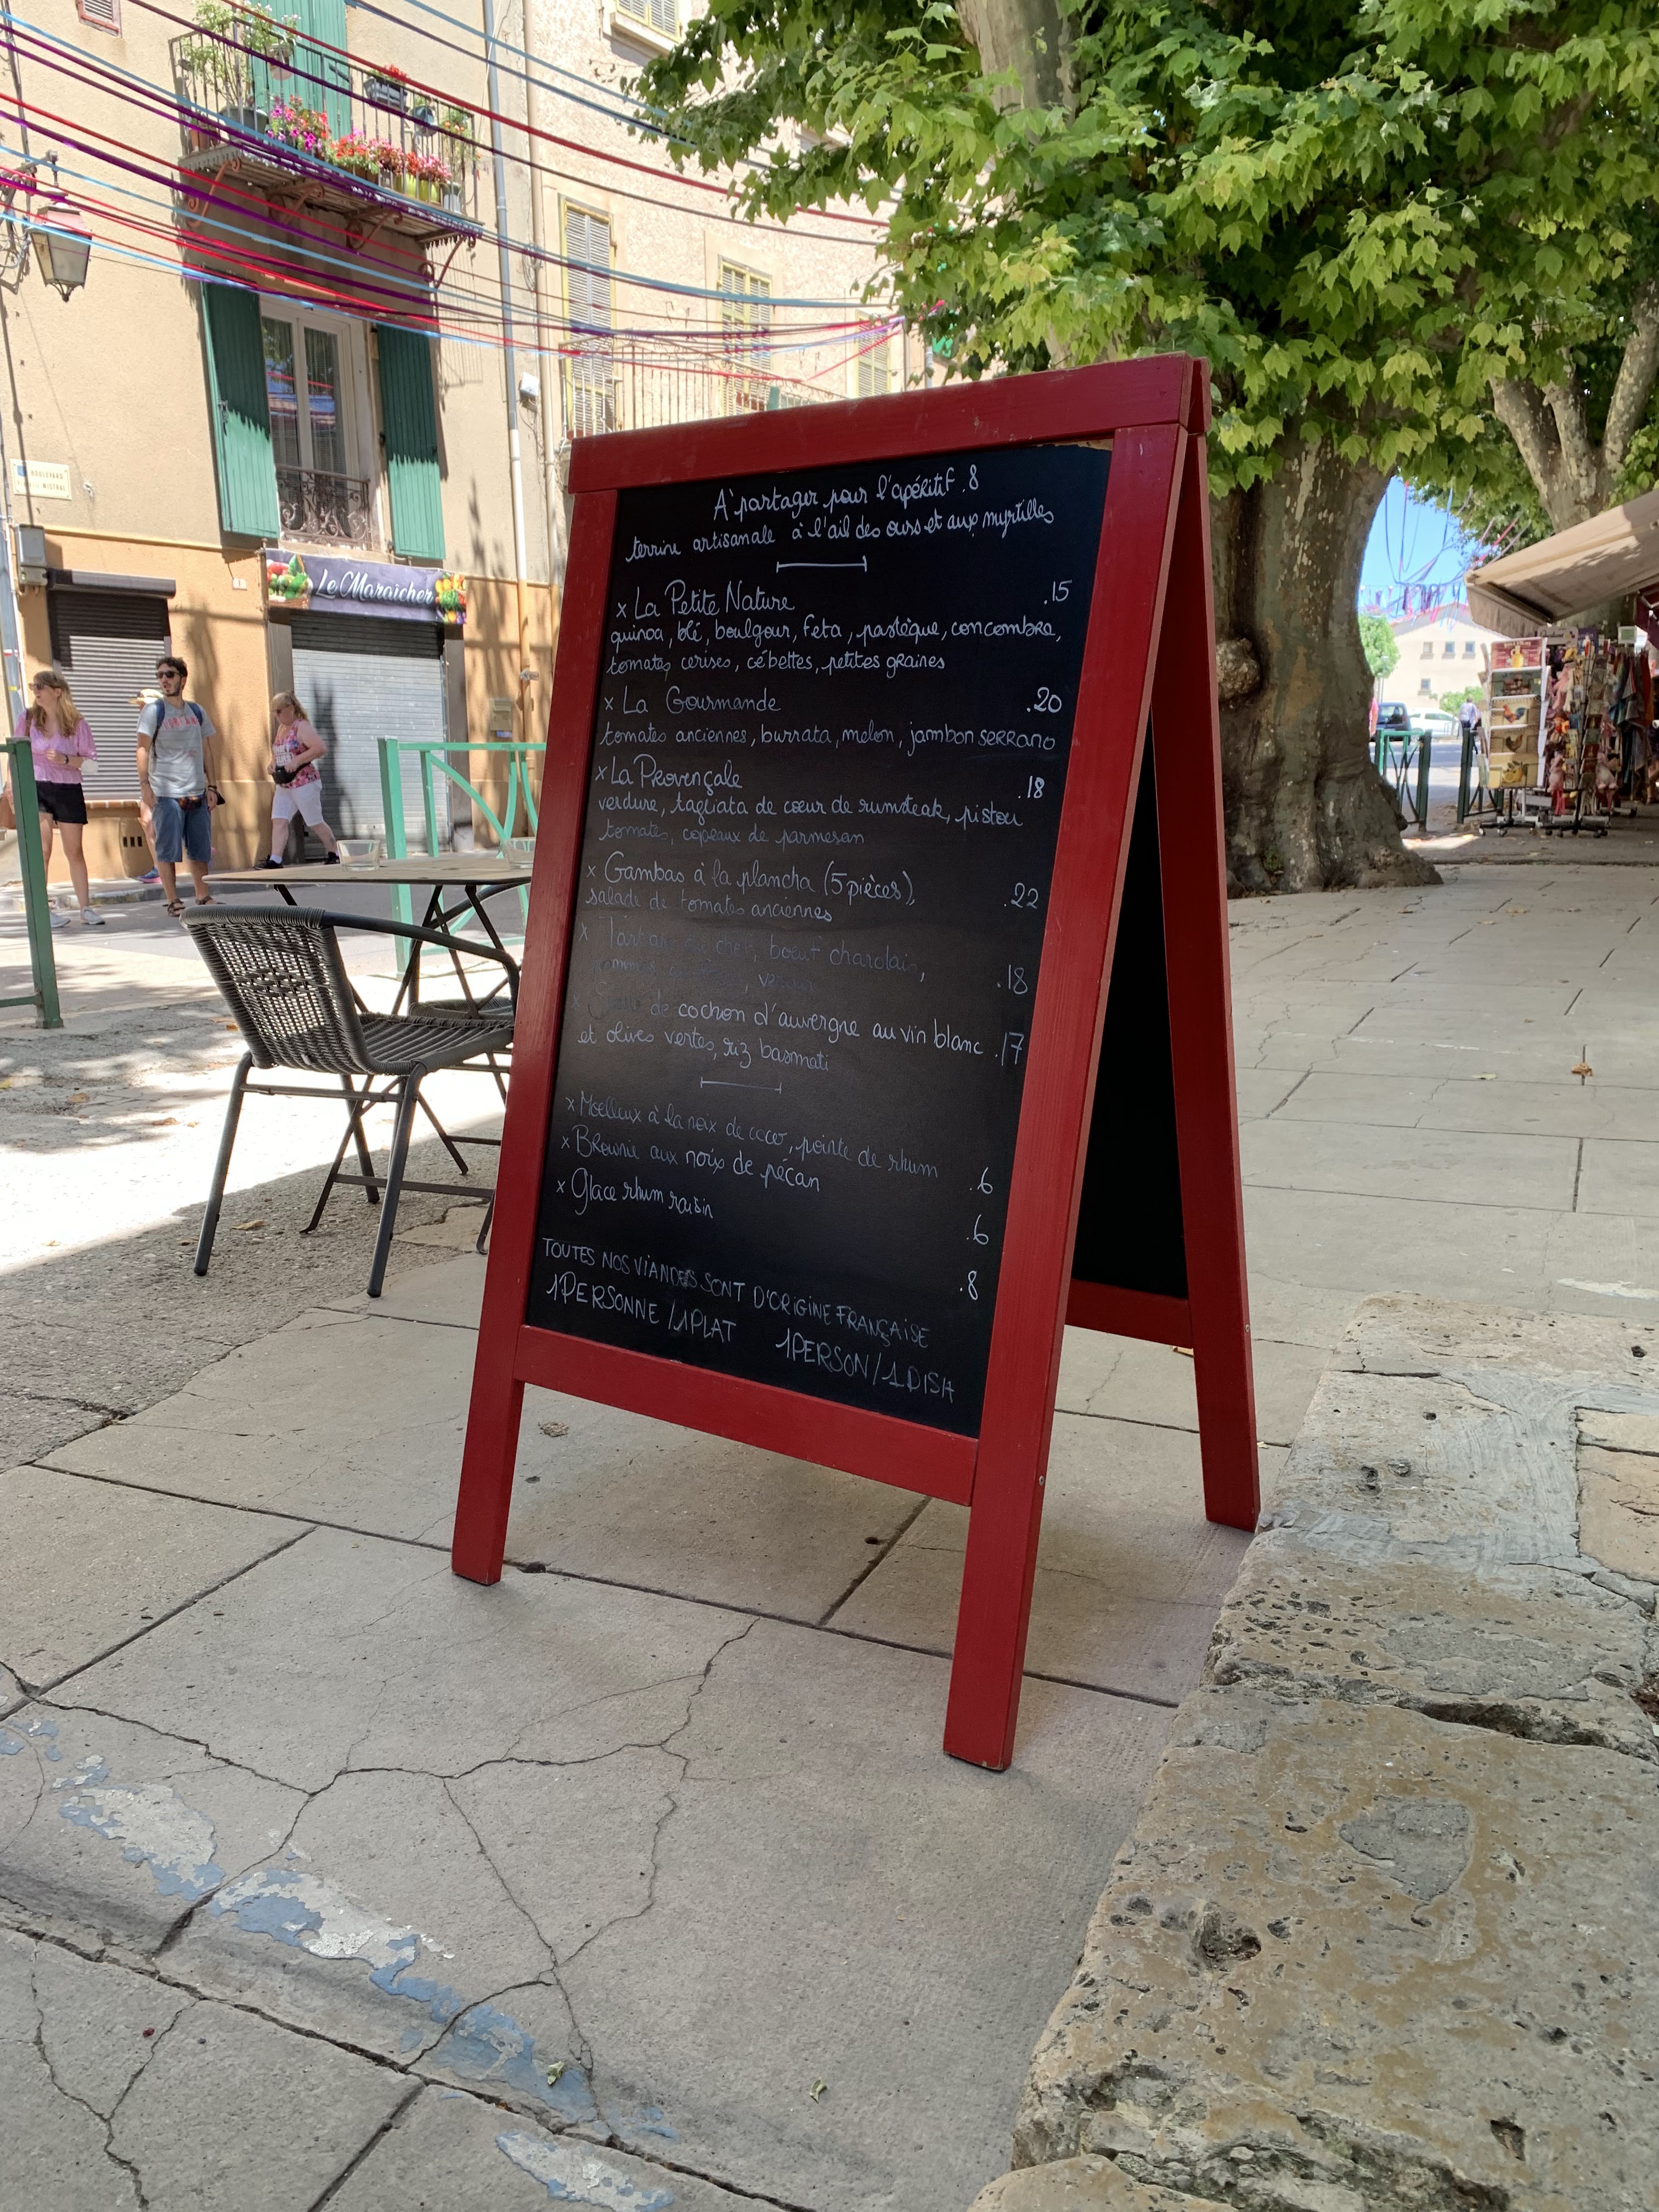 BOULEVARD
MISTRAL
Le Maraîcher
À partager pour l'apéritif .8
terrine artisanale à l'ail des ours et aux myrtilles
x La Petite Nature .15
quinoa, blé, boulgour, feta, pastèque, concombre,
tomates cerises, cébettes, petites graines
x La Gourmande .20
tomates anciennes, burrata, melon, jambon serrano
x La Provençale .18
verdure, tagliata de cœur de rumsteak, pistou
tomates, copeaux de parmesan
x Gambas à la plancha (5 pièces), .22
salade de tomates anciennes
x Tartare du chef, bœuf charolais, .18
x de cochon d'auvergne au vin blanc .17
et olives vertes, riz basmati
x Moelleux à la noix de coco, pointe de rhum .6
x Brownie aux noix de pécan .6
x Glace rhum raisin .8
TOUTES NOS VIANDES SONT D'ORIGINE FRANÇAISE
1 PERSONNE / 1 PLAT 1 PERSON / 1 DISH